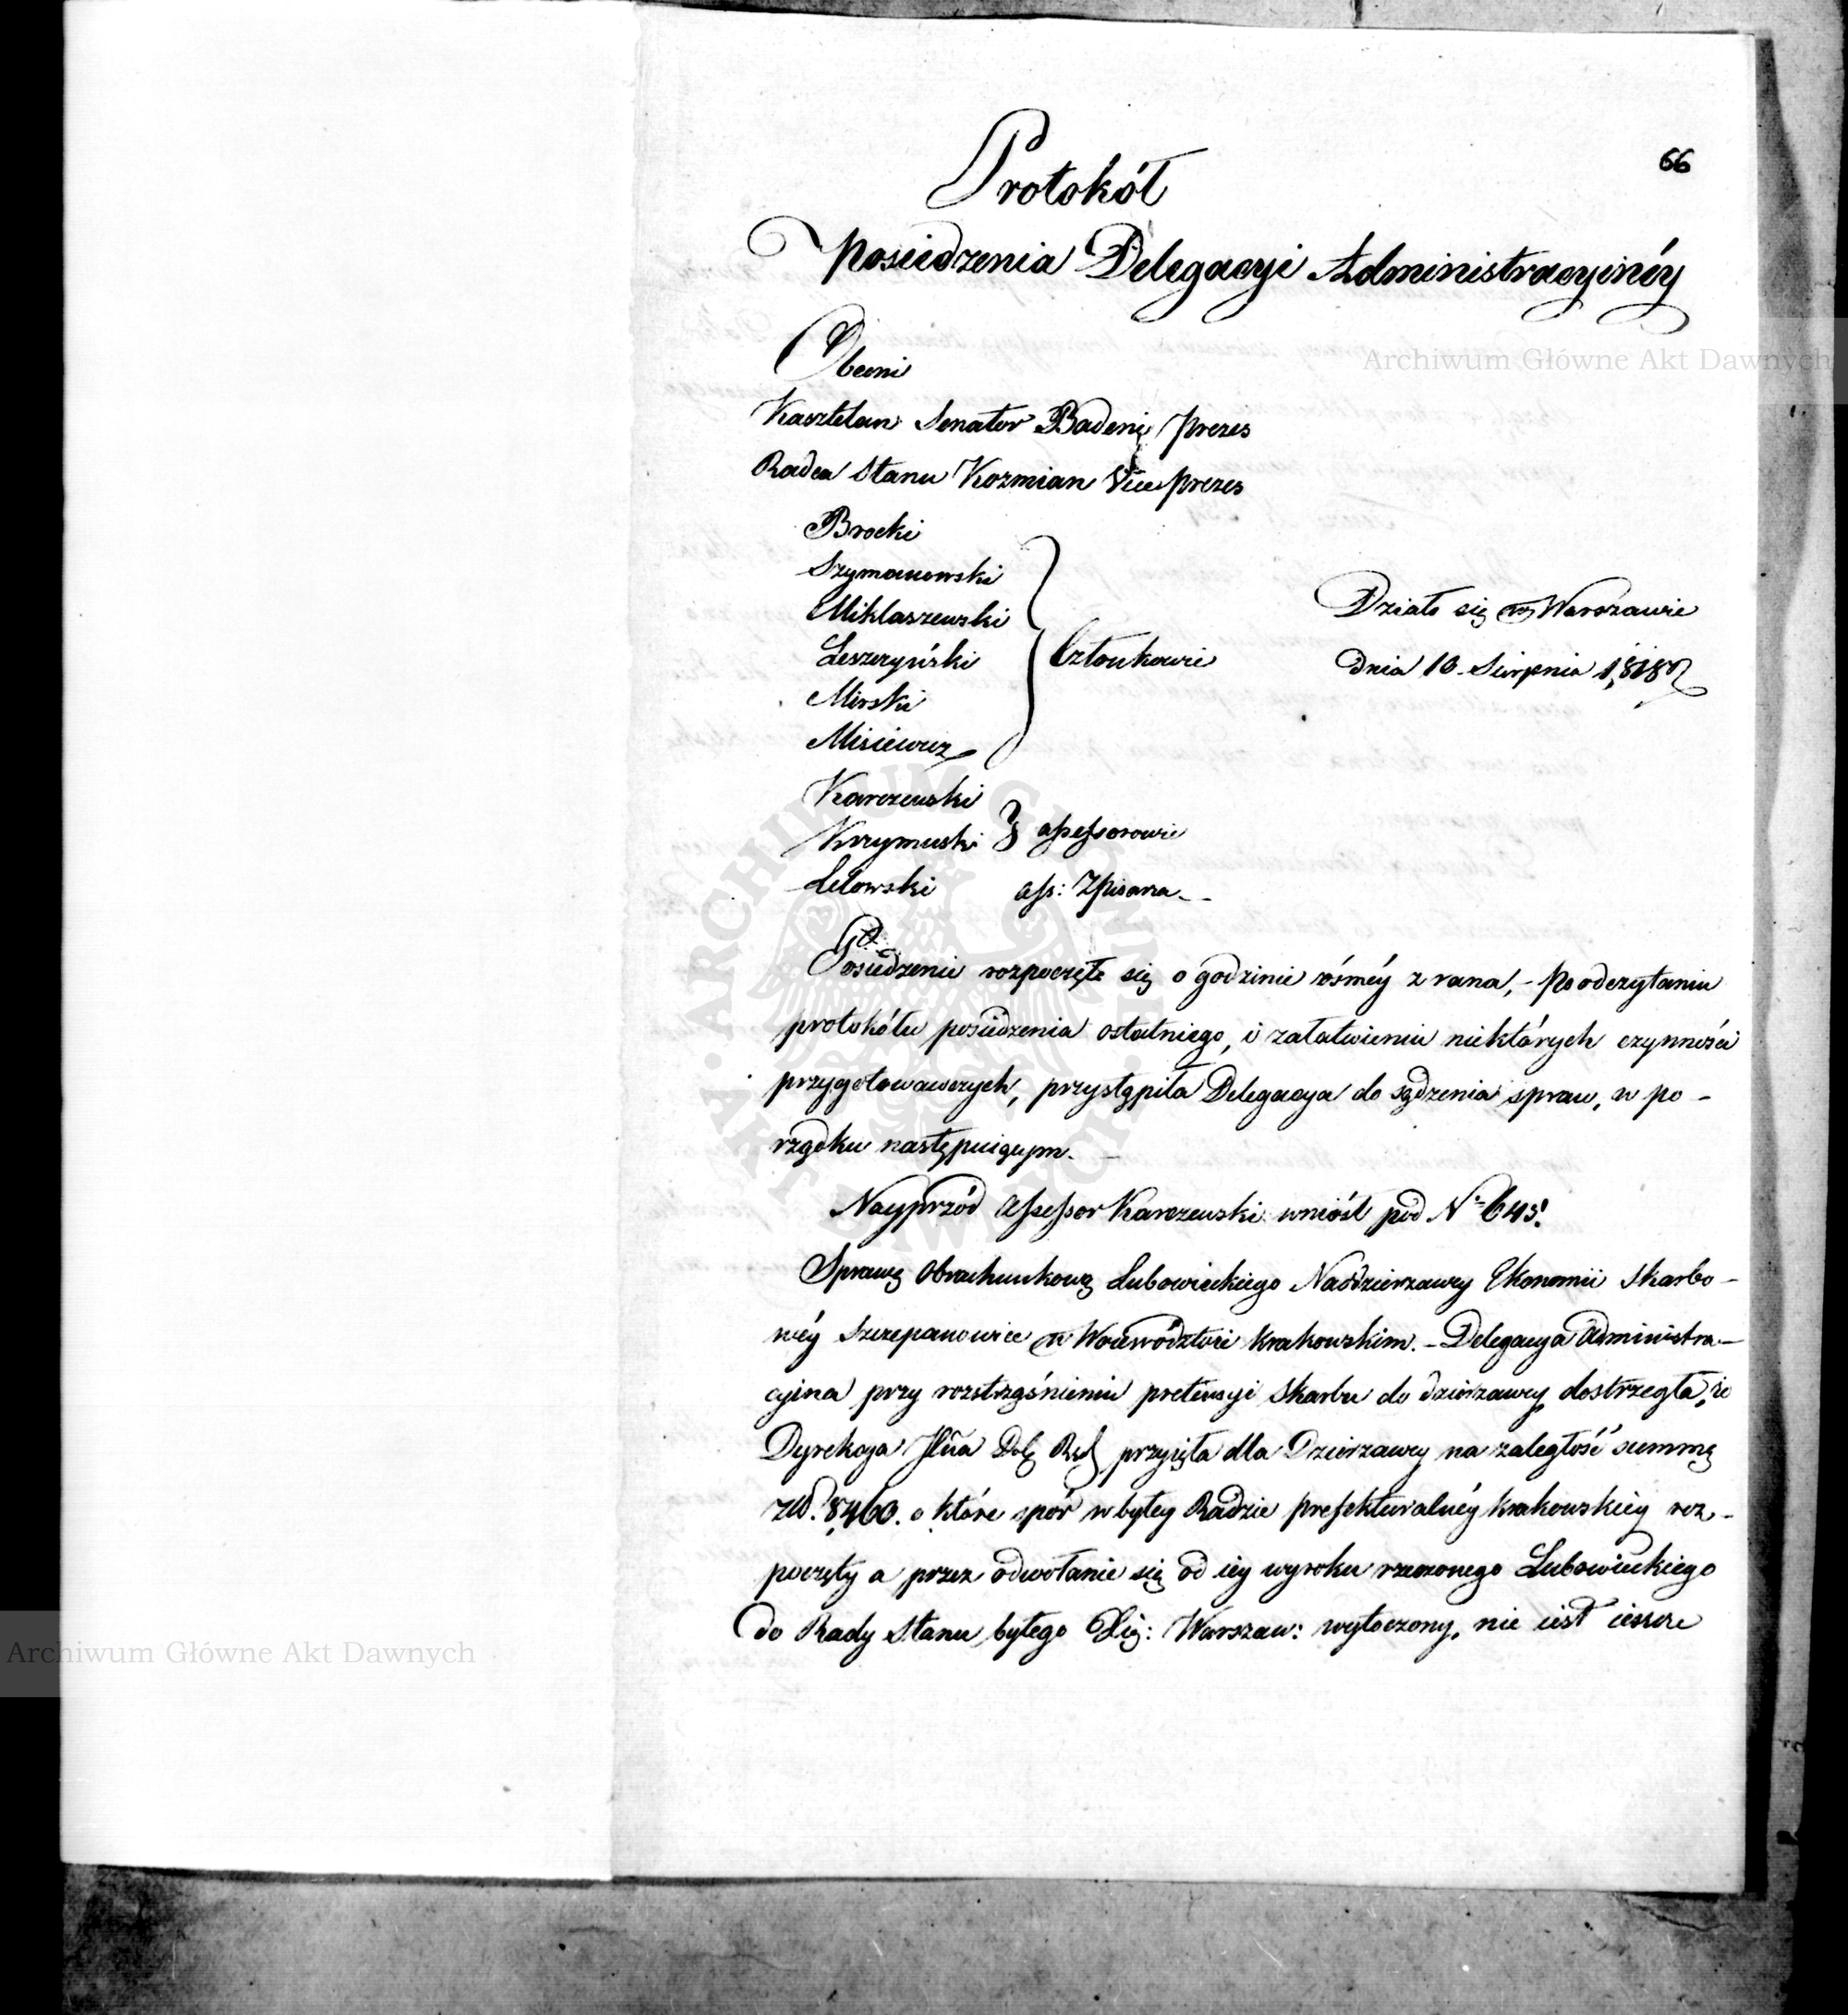 66
Protokół
Posiedzenia Delegacyi Administracyinéy
Obecni
Kasztelan Senator Badeni Prezes
Radca Stanu Kozmian Vice prezes
Brocki
Szymanowski
Miklaszewski
Leszczyński
Mirski
Misiewicz
Członkowie
Działo się w Warszawie
dnia 10. Sierpnia 1818 r
Karczewski
Krzymuski
assessorowie
Lelowski ass: Zpisarza
Posiedzenie rozpoczęte się o godzinie ósméy z rana, - Po odczytaniu
protokółu posiedzenia ostatniego, i załatwieniu niektórych czynności
przygotowawczych, przystąpiła Delegacya do sądzenia spraw, w po -
rządku następuiącym. -
Nayprzód Assessor Karczewski wniósł pod N 645.
Sprawę Obrachunkową Lubowieckiego Naddzierzawcy Ekonomii Skarbo -
wéy Szczepanowice w Woiewództwie Krakowskim. - Delegacya Administra -
cyina przy rozstrząśnieniu pretensyi Skarbu do dzierzawcy, dostrzegła, iż
Dyrekcya przyięła dla Dzierzawcy na zaległość summę
złł. 8,460. o które spór w byłey Radzie prefekturalnéy Krakowskiey roz -
poczęty a przez odwołanie się od iey wyroku rzeczonego Lubowieckiego
do Rady Stanu byłego Xię: Warszaw: wytoczony, nie iest ieszcze
Archiwum Główne Akt Dawnych
Archiwum Główne Akt Dawnych
ARCHIWUM GŁÓWNE AKT DAWNYCH